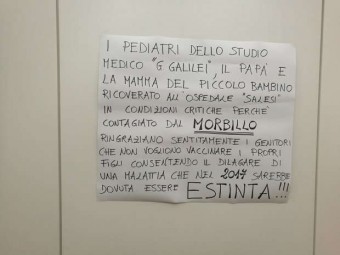 I PEDIATRI DELLO STUDIO
MEDICO "G GALILEI", IL PAPA' E
LA MAMMA DEL PICCOLO BAMBINO
RICOVERATO ALL'OSPEDALE "SALESI"
IN CONDIZIONI CRITICHE PERCHE'
CONTAGIATO DAL MORBILLO
RINGRAZIANO SENTITAMENTE I GENITORI
CHE NON VOGLIONO VACCINARE I PROPRI
FIGLI CONSENTENDO IL DILAGARE DI
UNA MALATTIA CHE NEL 2017 SAREBBE
DOVUTA ESSERE ESTINTA!!!